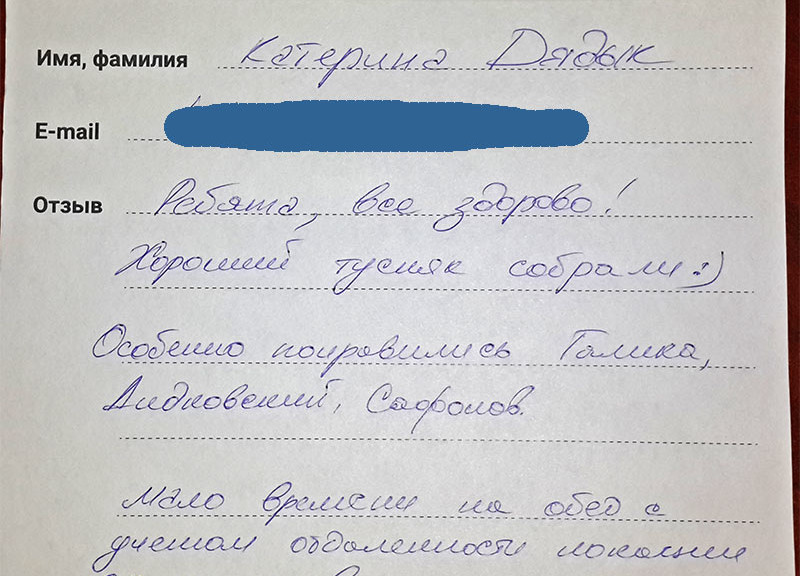 Имя, фамилия Катерина Дядык
E-mail
Отзыв Ребята, все здорово!
Хороший тусняк собрали :)
Особенно понравились Галика,
Дидковский, Сафронов.
Мало времени на обед с
учетом отдаленности локации